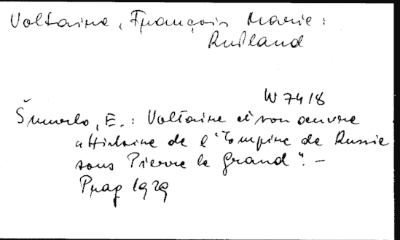 Voltaire, François Marie:
Rußland
W 74/8
Šmurlo, E.: Voltaire et son oeuvre
"Histoire de l'Empire de Russie
sous Pierre le Grand". –
Prag 1929